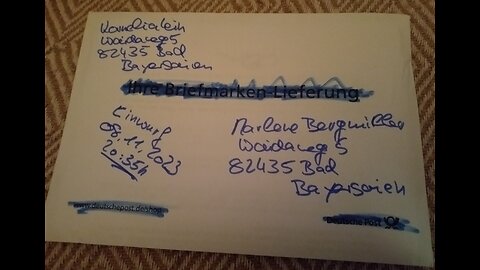 82435 Bad
Bayersoien
Ihre Briefmarken-Lieferung
Einwurf
08.11.2023
20:35h
Marlene Bergmiller
5
82435 Bad
Bayersoien
www.deutschepost.de/shop
Deutsche Post